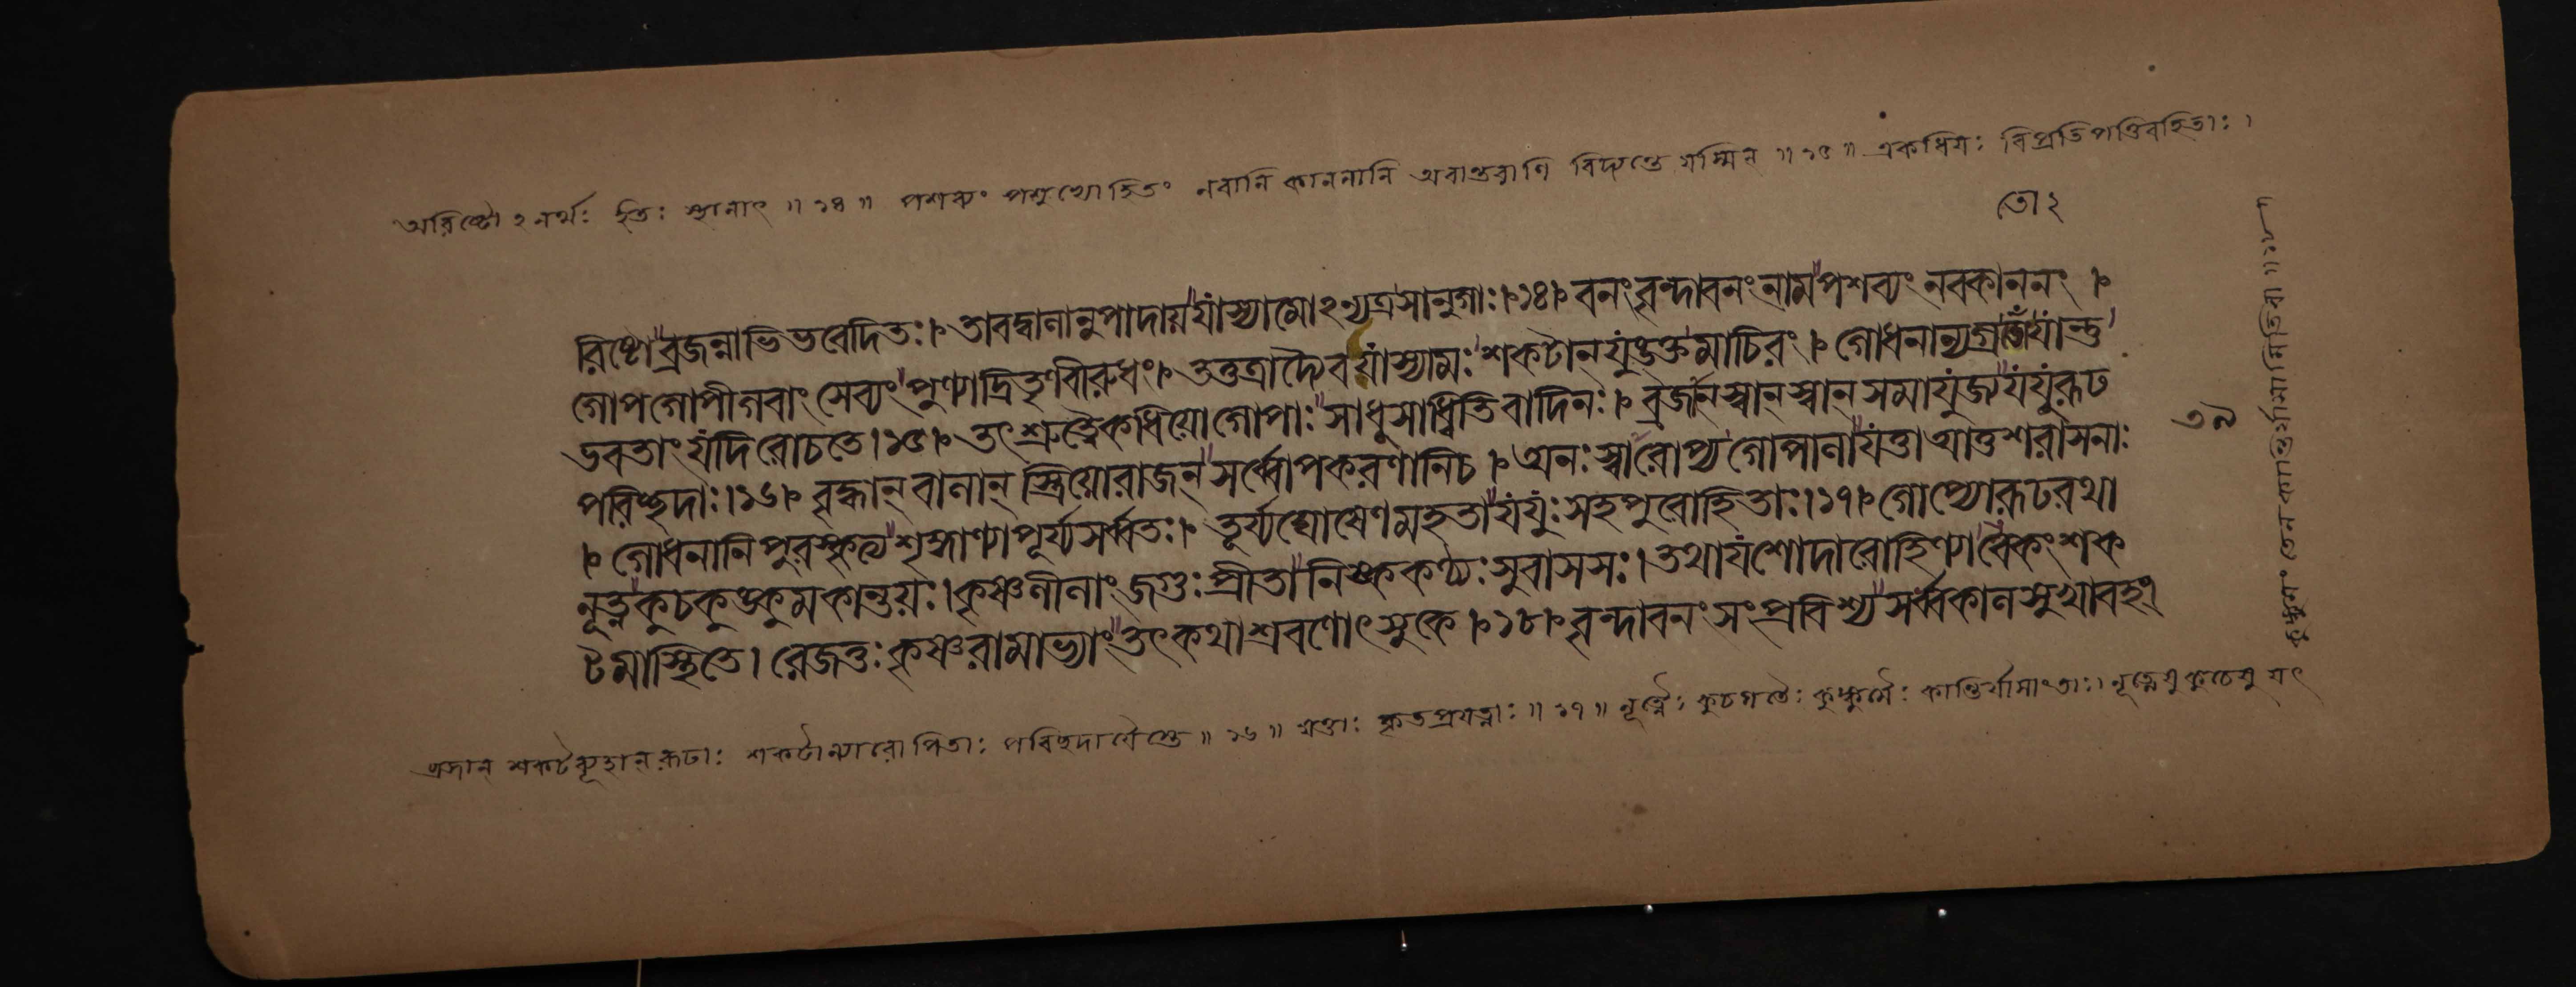 অরিষ্টোঽনর্থঃ ইতিঃ স্থানাৎ ॥ ১৪ ॥ পশব্যং পশুভ্যোহিতং নবানি কাননানি অবান্তরাণি বিদ্যন্তে যস্মিন ॥ ১৫ ॥ একধিয়ঃ বিপ্রতিপত্তিরহিতাঃ ।
তো ২
রিষ্টো ব্রজন্নাভিভবেদিতঃ। তাবদ্বালানুপাদায় যাস্যামোঽন্যত্রসানুগাঃ।১৪। বনংবৃন্দাবনংনাম পশব্যং নবকাননং ।
গোপগোপীগবাং সেব্যং পুণ্যাদ্রিতৃণবীরুধং। তত্তত্রাদ্যৈব যাস্যামঃ শকটান যুঙ্ক্তমাচিরং। গোধনান্যগ্রতো যান্তু
ভবতাং যদি রোচতে।১৫। তৎ শ্রুত্বৈকধিয়োগোপাঃ সাধুসাধ্বিতিবাদিনঃ। ব্রজান স্বান্ স্বান্ সমাযুজ্য যযুরূঢ
পরিচ্ছদাঃ।১৬। বৃদ্ধান্ বালান্ স্ত্রিয়োরাজন্ সর্ব্বোপকরণানিচ । অনঃস্বারোপ্য গোপালা যত্তা আত্তশরাসনাঃ
। গোধনানি পুরস্কৃত্য শৃঙ্গাণ্যাপূর্য্য সর্ব্বতঃ। তূর্য্যঘোষেণমহতা যযুঃ সহপুরোহিতাঃ।১৭। গোপ্যোরূঢরথা
নূত্নকুচকুঙ্কুমকান্তয়ঃ। কৃষ্ণলীলাং জগুঃ প্রীতা নিষ্ককণ্ঠ্যঃ সুবাসসঃ। তথাযশোদারোহিণ্যাবেকংশক
টমাস্থিতে। রেজতুঃ কৃষ্ণরামাভ্যাং তৎকথাশ্রবণোৎসুকে।১৮। বৃন্দাবনং সংপ্রবিশ্য সর্ব্বকালসুখাবহং
৩৯
ব্রজান শকটব্যূহান রূঢাঃ শকটান্যারোপিতাঃ পরিচ্ছদা যৈস্তে ॥ ১৬ ॥ যত্তাঃ কৃতপ্রযত্নাঃ ॥ ১৭ ॥ নূত্নৈঃ কুচগতৈঃ কুঙ্কুমৈঃ কান্তির্যাসাংতাঃ। নূত্নেষু কুচেষু যৎ
কুঙ্কুমং তেন কান্তির্যাসামিতিবা ॥ ১৮ ॥